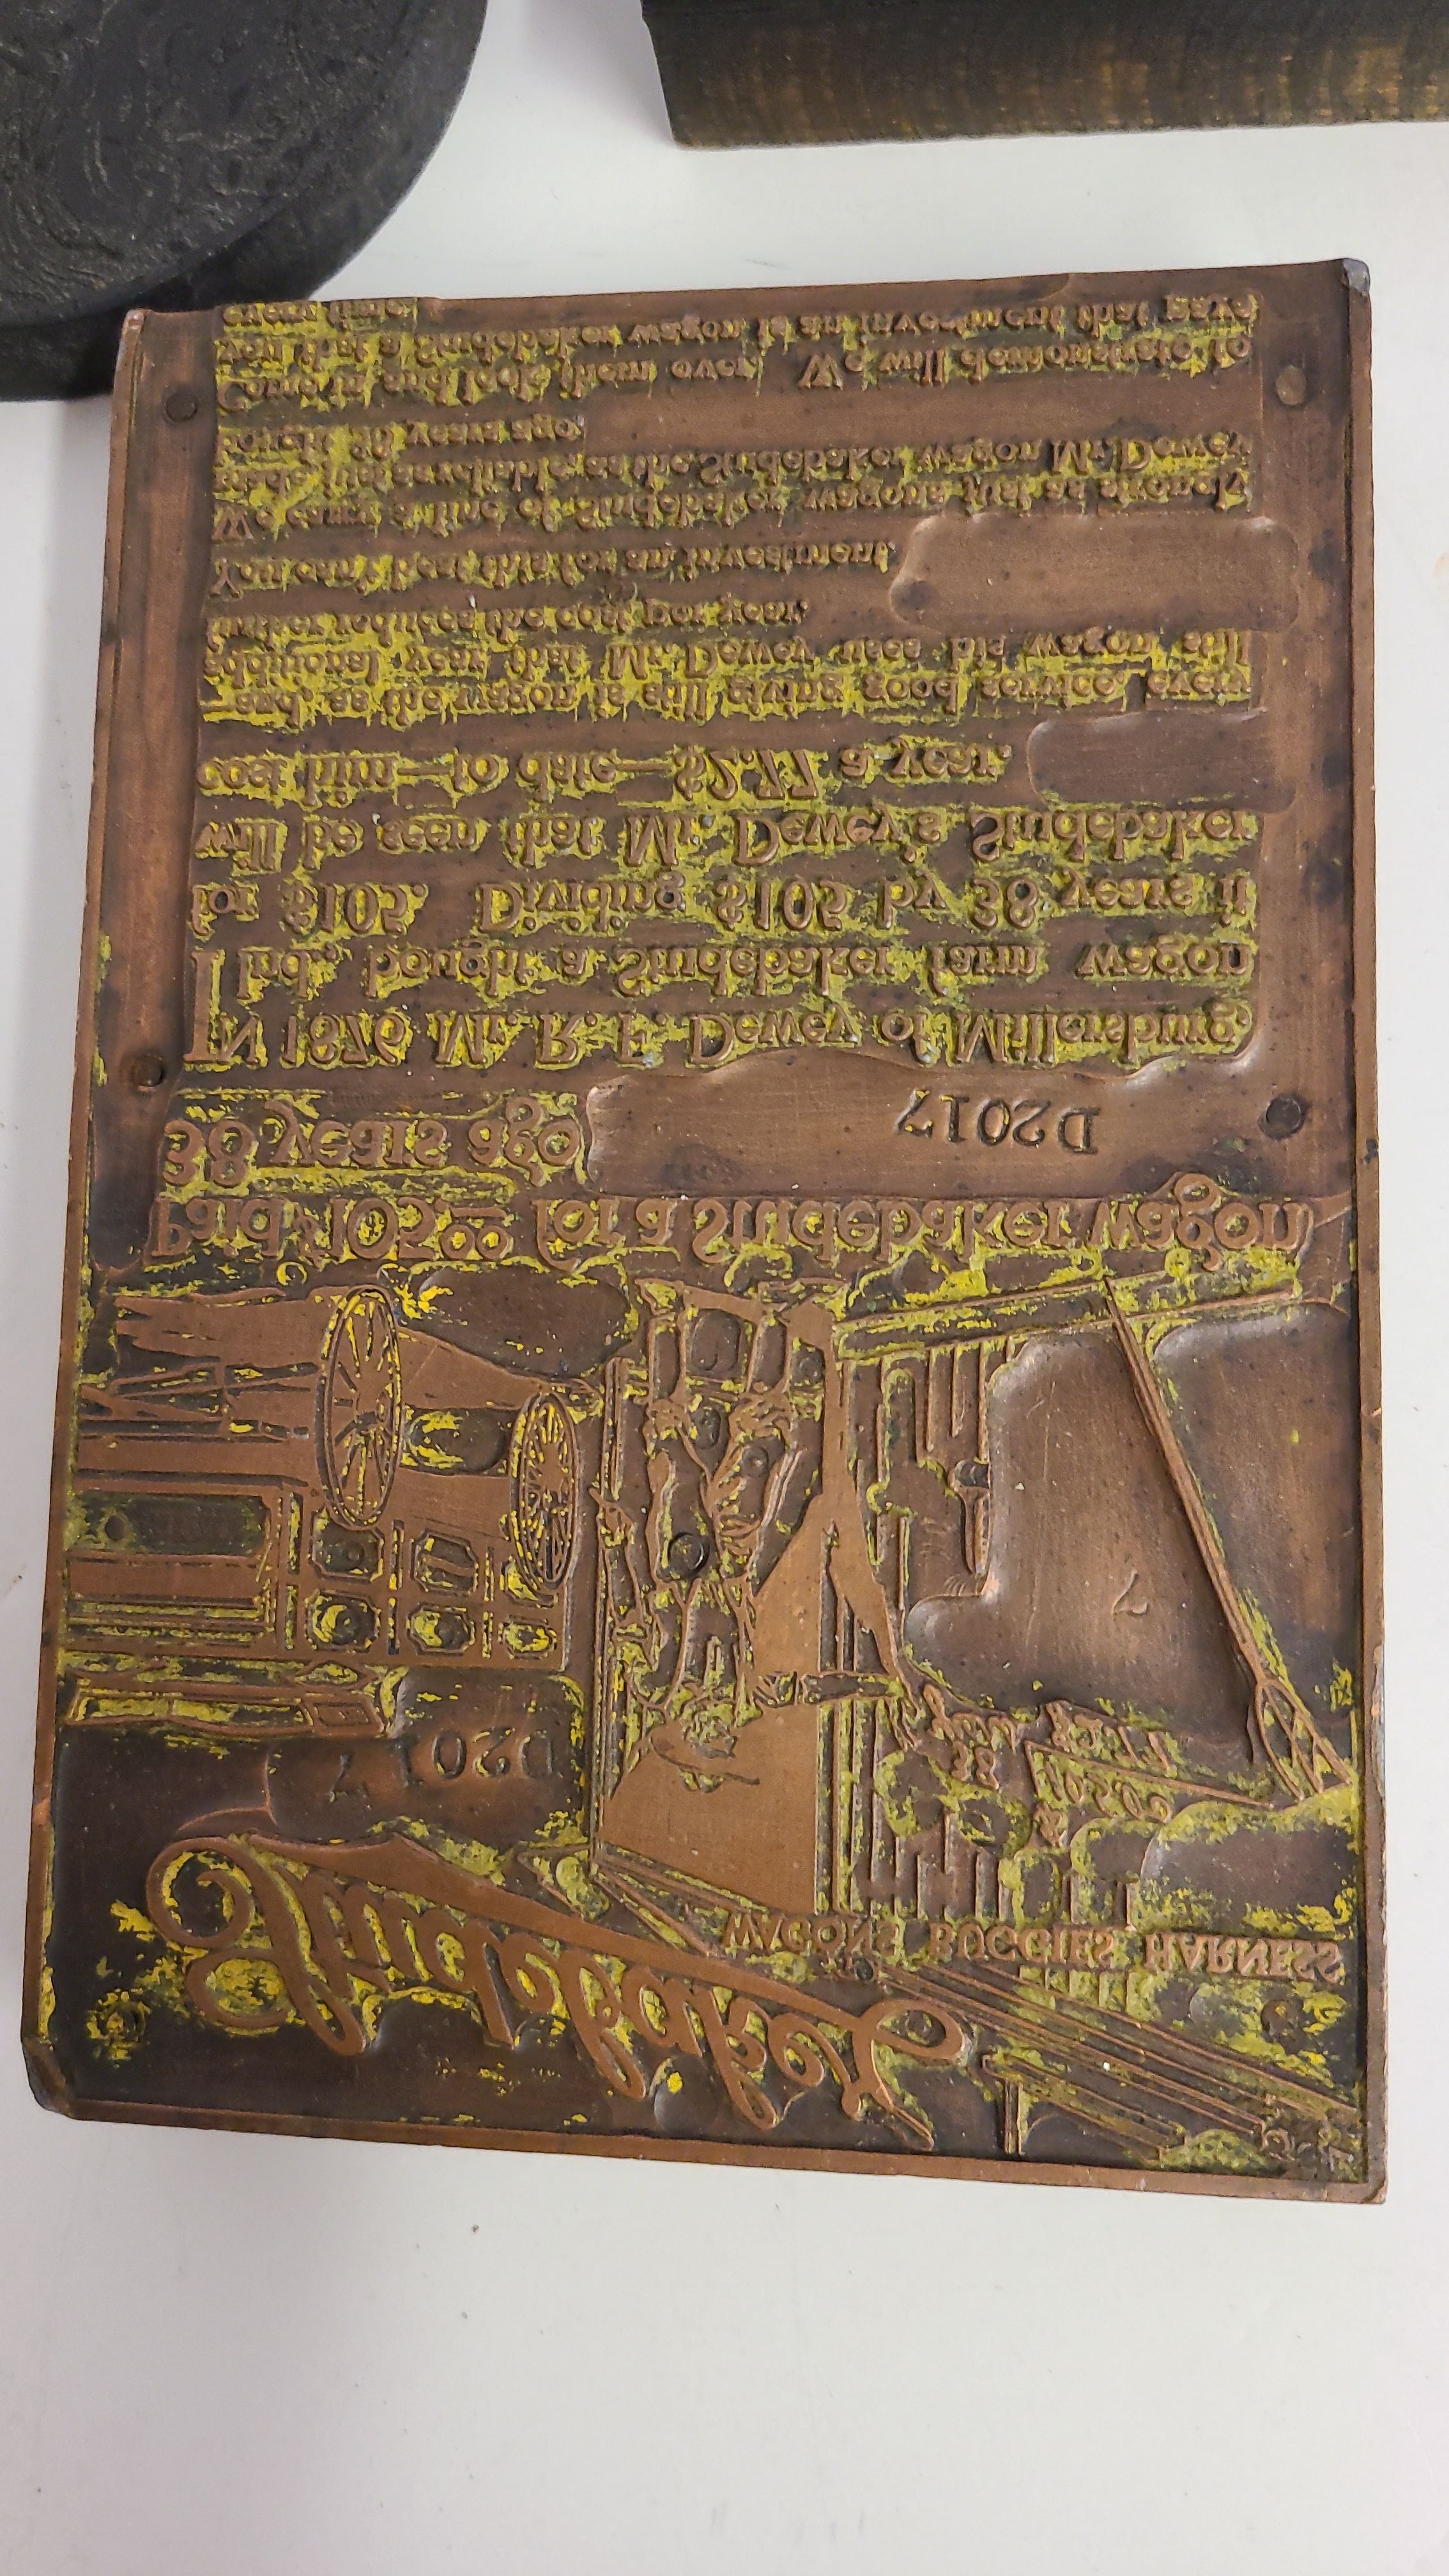 Studebaker
WAGONS BUGGIES HARNESS
38
D2017
Paid $105.00 for a Studebaker wagon
38 years ago
D2017
IN 1876 Mr. R. F. Dewey of Millersburg,
Ind., bought a Studebaker farm wagon
for $105. Dividing $105 by 38 years it
will be seen that Mr. Dewey's Studebaker
cost him—to date—$2.77 a year.
—and, as the wagon is still giving good service, every
additional year that Mr. Dewey uses his wagon, still
further reduces the cost per year.
You can't beat this for an investment.
We carry a line of Studebaker wagons just as strongly
made, just as serviceable as the Studebaker wagon Mr. Dewey
bought 38 years ago.
Come in and look them over. We will demonstrate to
you that a Studebaker wagon is an investment that pays
every time.